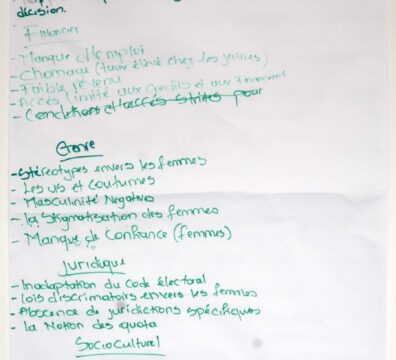 décision.
Financier
- Manque d'emploi
- Chomage (taux élevé chez les jeunes)
- Faible revenu
- Accès limité aux crédits et aux financement
- Conditions et accès strictes pour
Genre
- Stéréotypes envers les femmes
- Les us et coutumes
- Masculinité Negatives
- la Stigmatisation des femmes
- Manque de Confiance (femmes)
Juridique
- Inadaptation du Code électoral
- lois discrimatoirs envers les femmes
- Abscence de juridictions spécifiques
- la Notion des quota
Socioculturel